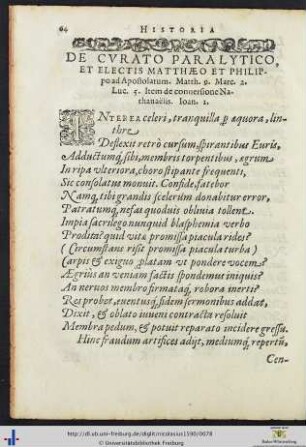 64 HISTORIA
DE CVRATO PARALYTICO,
ET ELECTIS MATTHÆO ET PHILIP-
po ad Apostolatum. Matth. 9. Marc. 2.
Luc. 5. Item de conuersione Na-
thanaëlis. Ioan. 1.
INTEREA celeri, tranquilla ꝑ æquora, lin-
thre
Deflexit retrò cursum, spirantibus Euris,
Adductumq́, sibi, membris torpentibus, ægrum
In ripa vlteriora, choro stipante frequenti,
Sic consolatus monuit. Confide, fatebor
Namq, tibi grandis scelerum donabitur error,
Patratumq, nefas quoduis obliuia tollent.
Impia sacrilego nunquid blasphemia verbo
Prodita? quid vitæ promissa piacula rides?
(Circumstans risit promissa piacula turba)
Carpis & exiguo prolatam vt pondere vocem?
Ægrius an veniam factis spondemus iniquis?
An neruos membro firmataq, robora inerti?
Res probet, euentusq, fidem sermonibus addat,
Dixit, & oblato iuueni contracta resoluit
Membra pedum, & potuit reparato incidere gressu.
Hinc fraudum artifices adijt, mediumq́, repertũ,
Cen-
http://dl.ub.uni-freiburg.de/diglit/nicolasius1590/0078
© Universitätsbibliothek Freiburg